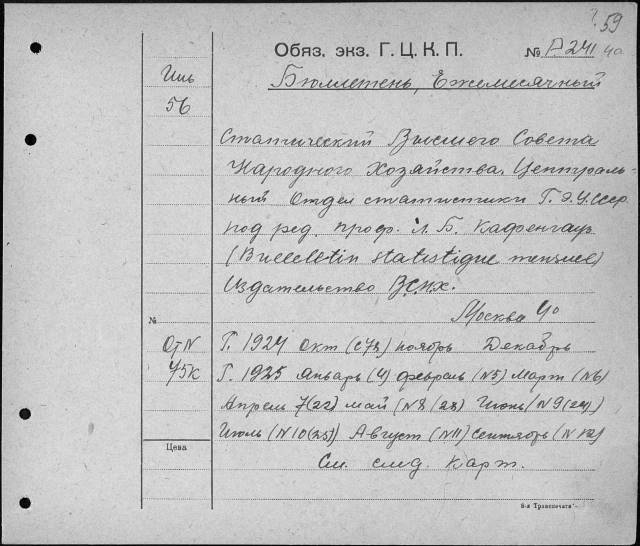 59
Обяз. экз. Г. Ц. К. П. № А 241 40
Иль
56
Бюллетень, Ежемесячный
Статический Высшего Совета
Народного Хозяйства. Централь-
ный Отдел статистики Г.Э.У. ссср.
под ред. проф. Л. Б. Кафенгауз
(Bulletin statistique mensuel)
Издательство ВСНХ.
Москва 4°
№
От N
Г. 1924 Окт (с 72) ноябрь Декабрь
45к
Г. 1925 Январь (4) февраль (N5) Март (N6)
Апрель 7(22) май (N8 (23) Июнь (N9 (24))
Июль (N10 (25)) Август (N11) сентябрь (N12)
Цена
См. след. карт.
8-я Транспечати